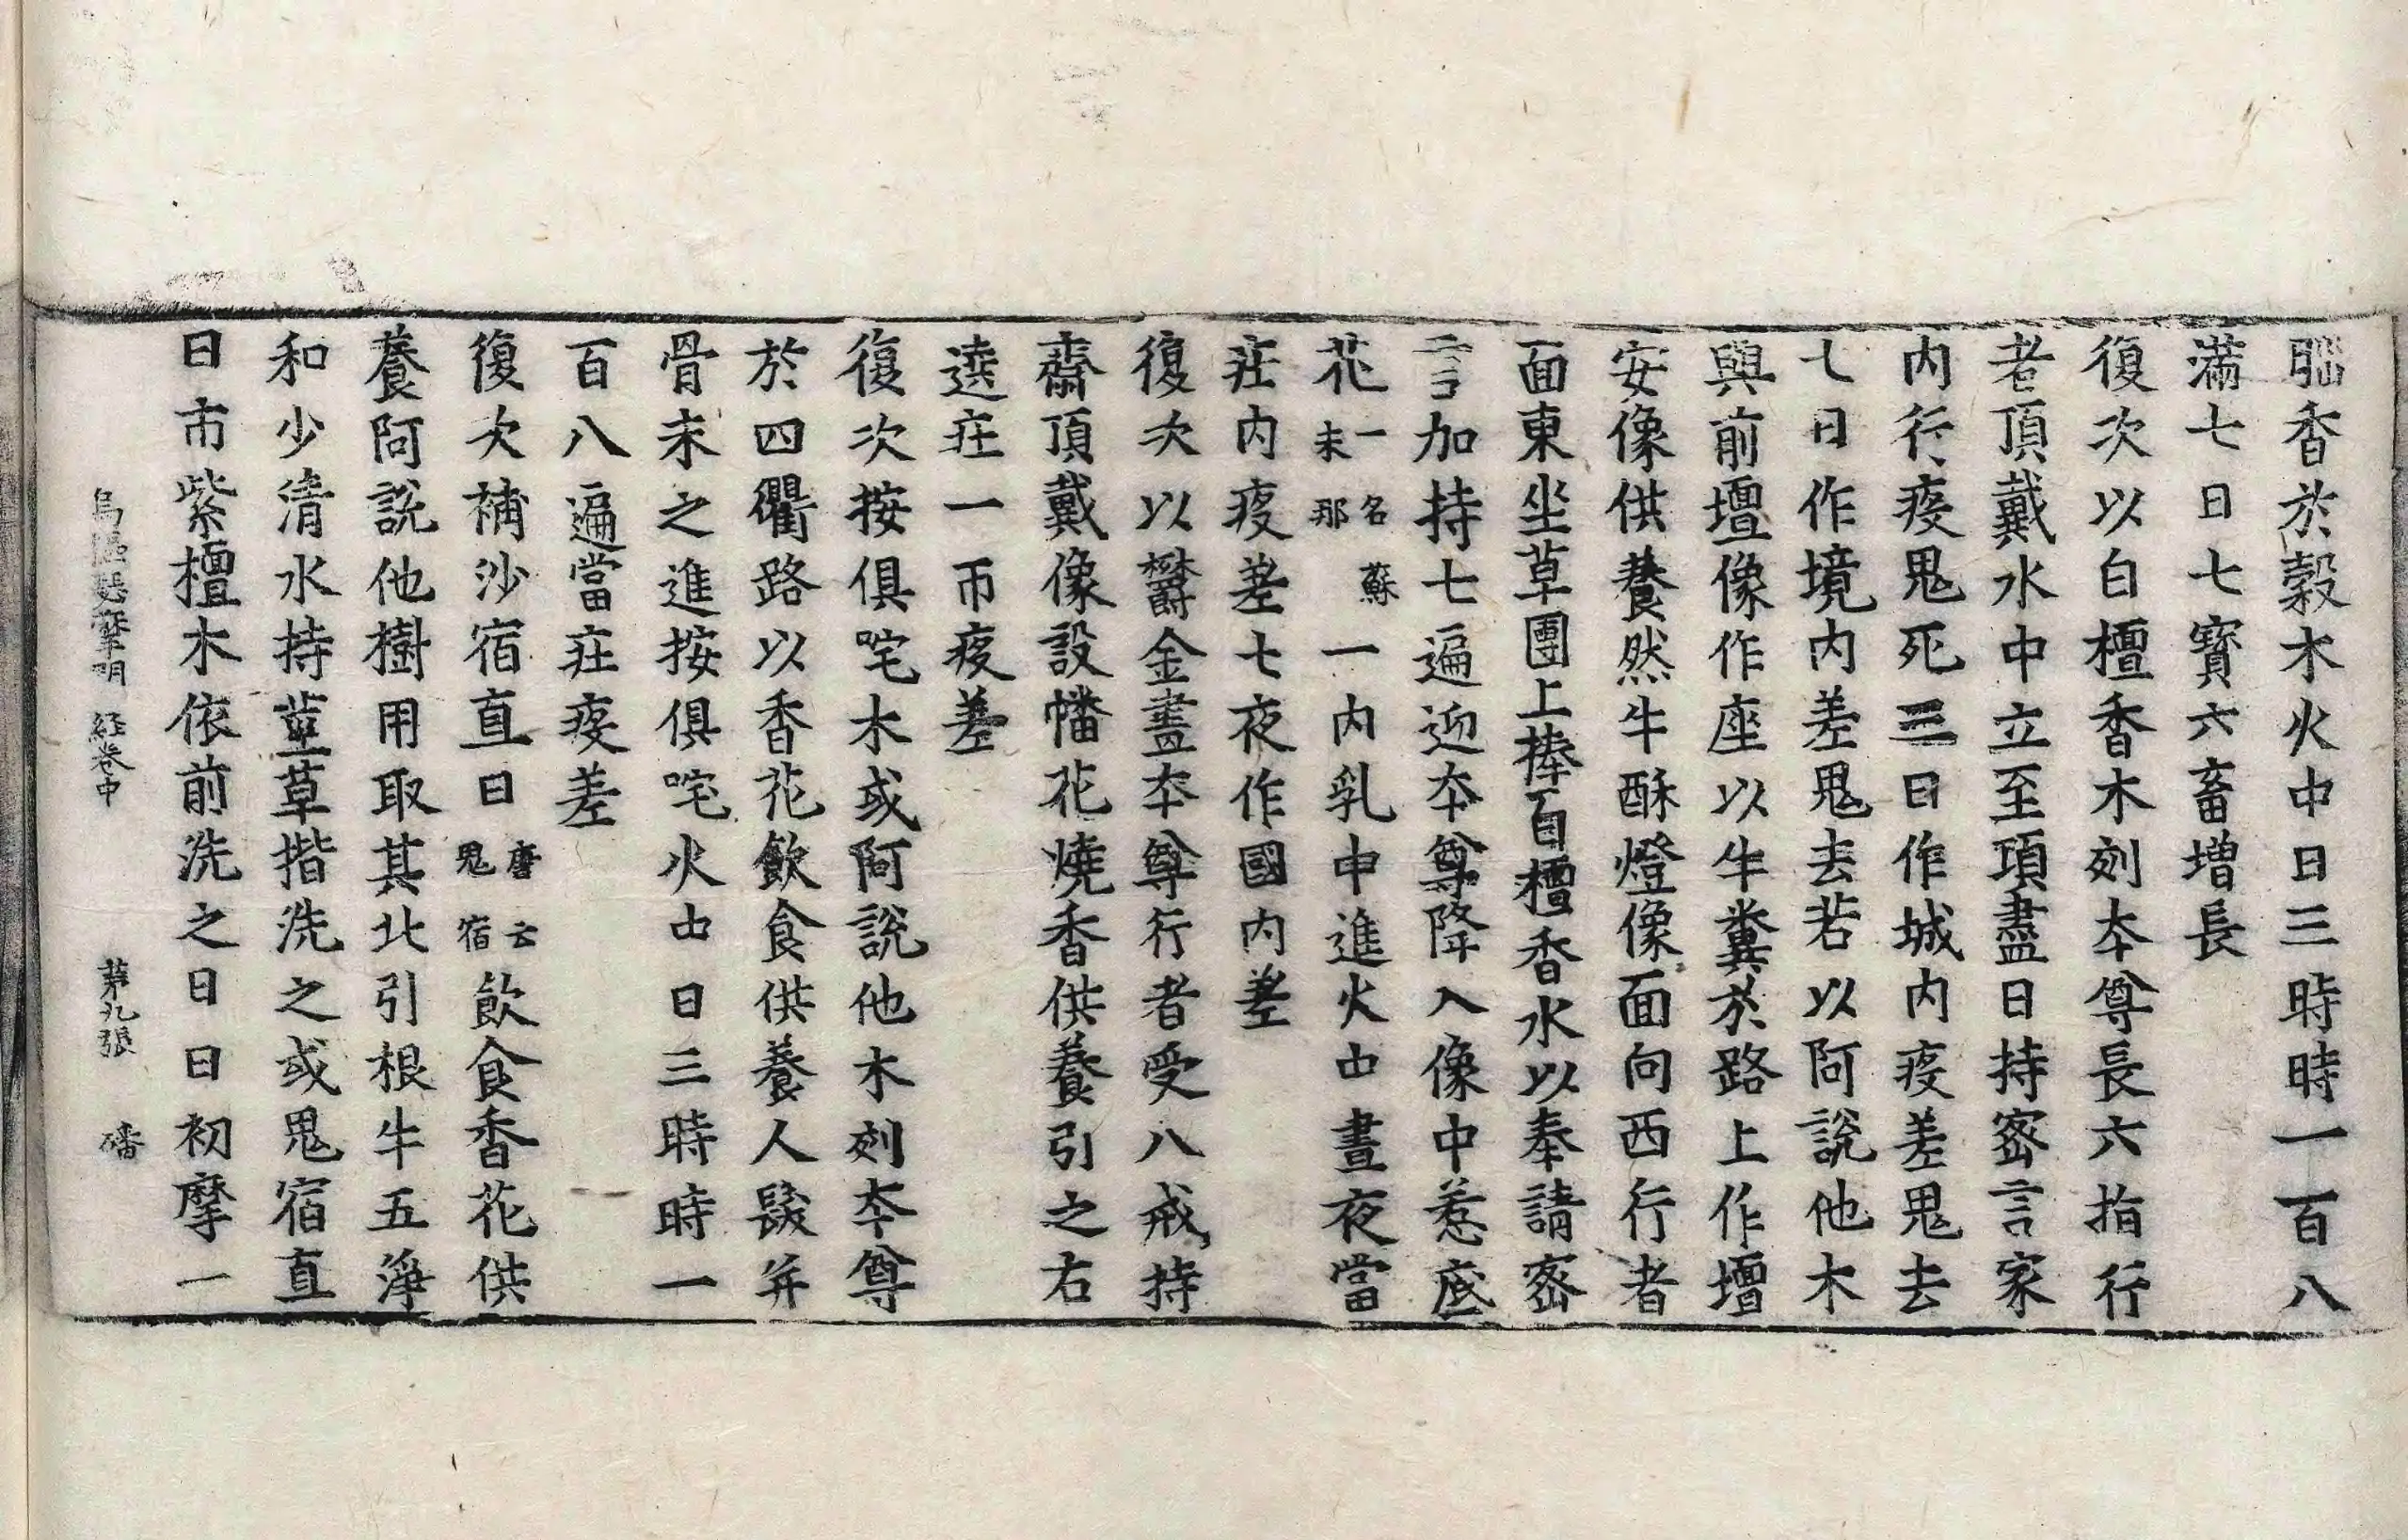 香於穀木火中日三時時一百八
滿七日七寶六畜增長
復次以白檀香木刻本尊長六指行
者頂戴水中立至項盡日持密言家
内行疫鬼死三日作城内疫差鬼去
七日作境内差鬼去若以阿說他木
與前壇像作座以牛糞於路上作壇
安像供養然牛酥燈像面向西行者
面東坐草團上捧百檀香水以奉請密
言加持七遍迎本尊降入像中惹底
花一名蘇末那一内乳中進火中晝夜當
庄内疫差七夜作國内差
復次以欝金畫本尊行者受八戒持
齋頂戴像設幡花燒香供養引之右
遶庄一帀疫差
復次按俱咤木或阿說他木刻本尊
於四衢路以香花飲食供養人髮并
骨末之進按俱咤火中日三時時一
百八遍當庄疫差
復次補沙宿直日唐云鬼宿飲食香花供
養阿說他樹用取其北引根牛五淨
和少清水持莖草揩洗之或鬼宿直
日市紫檀木依前洗之日日初摩一
烏樞瑟摩明經卷中 第九張 磻